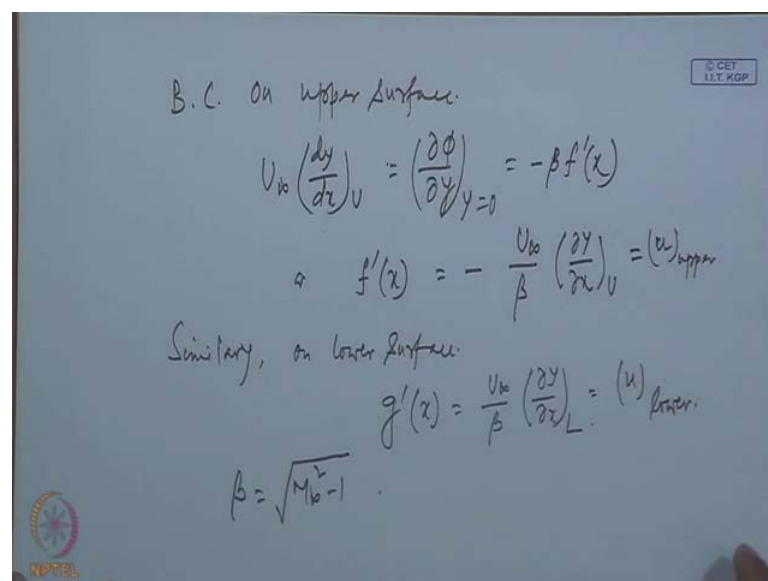 © CET
I.I.T. KGP
B.C. on upper surface.
U∞ (dy/dx)_U = (∂φ/∂y)_{y=0} = -β f'(x)
a f'(x) = - U∞/β (∂y/∂x)_U = (u)_upper
Similary, on lower surface.
g'(x) = U∞/β (∂y/∂x)_L = (u)_lower.
β = √(M∞² - 1) .
NPTEL